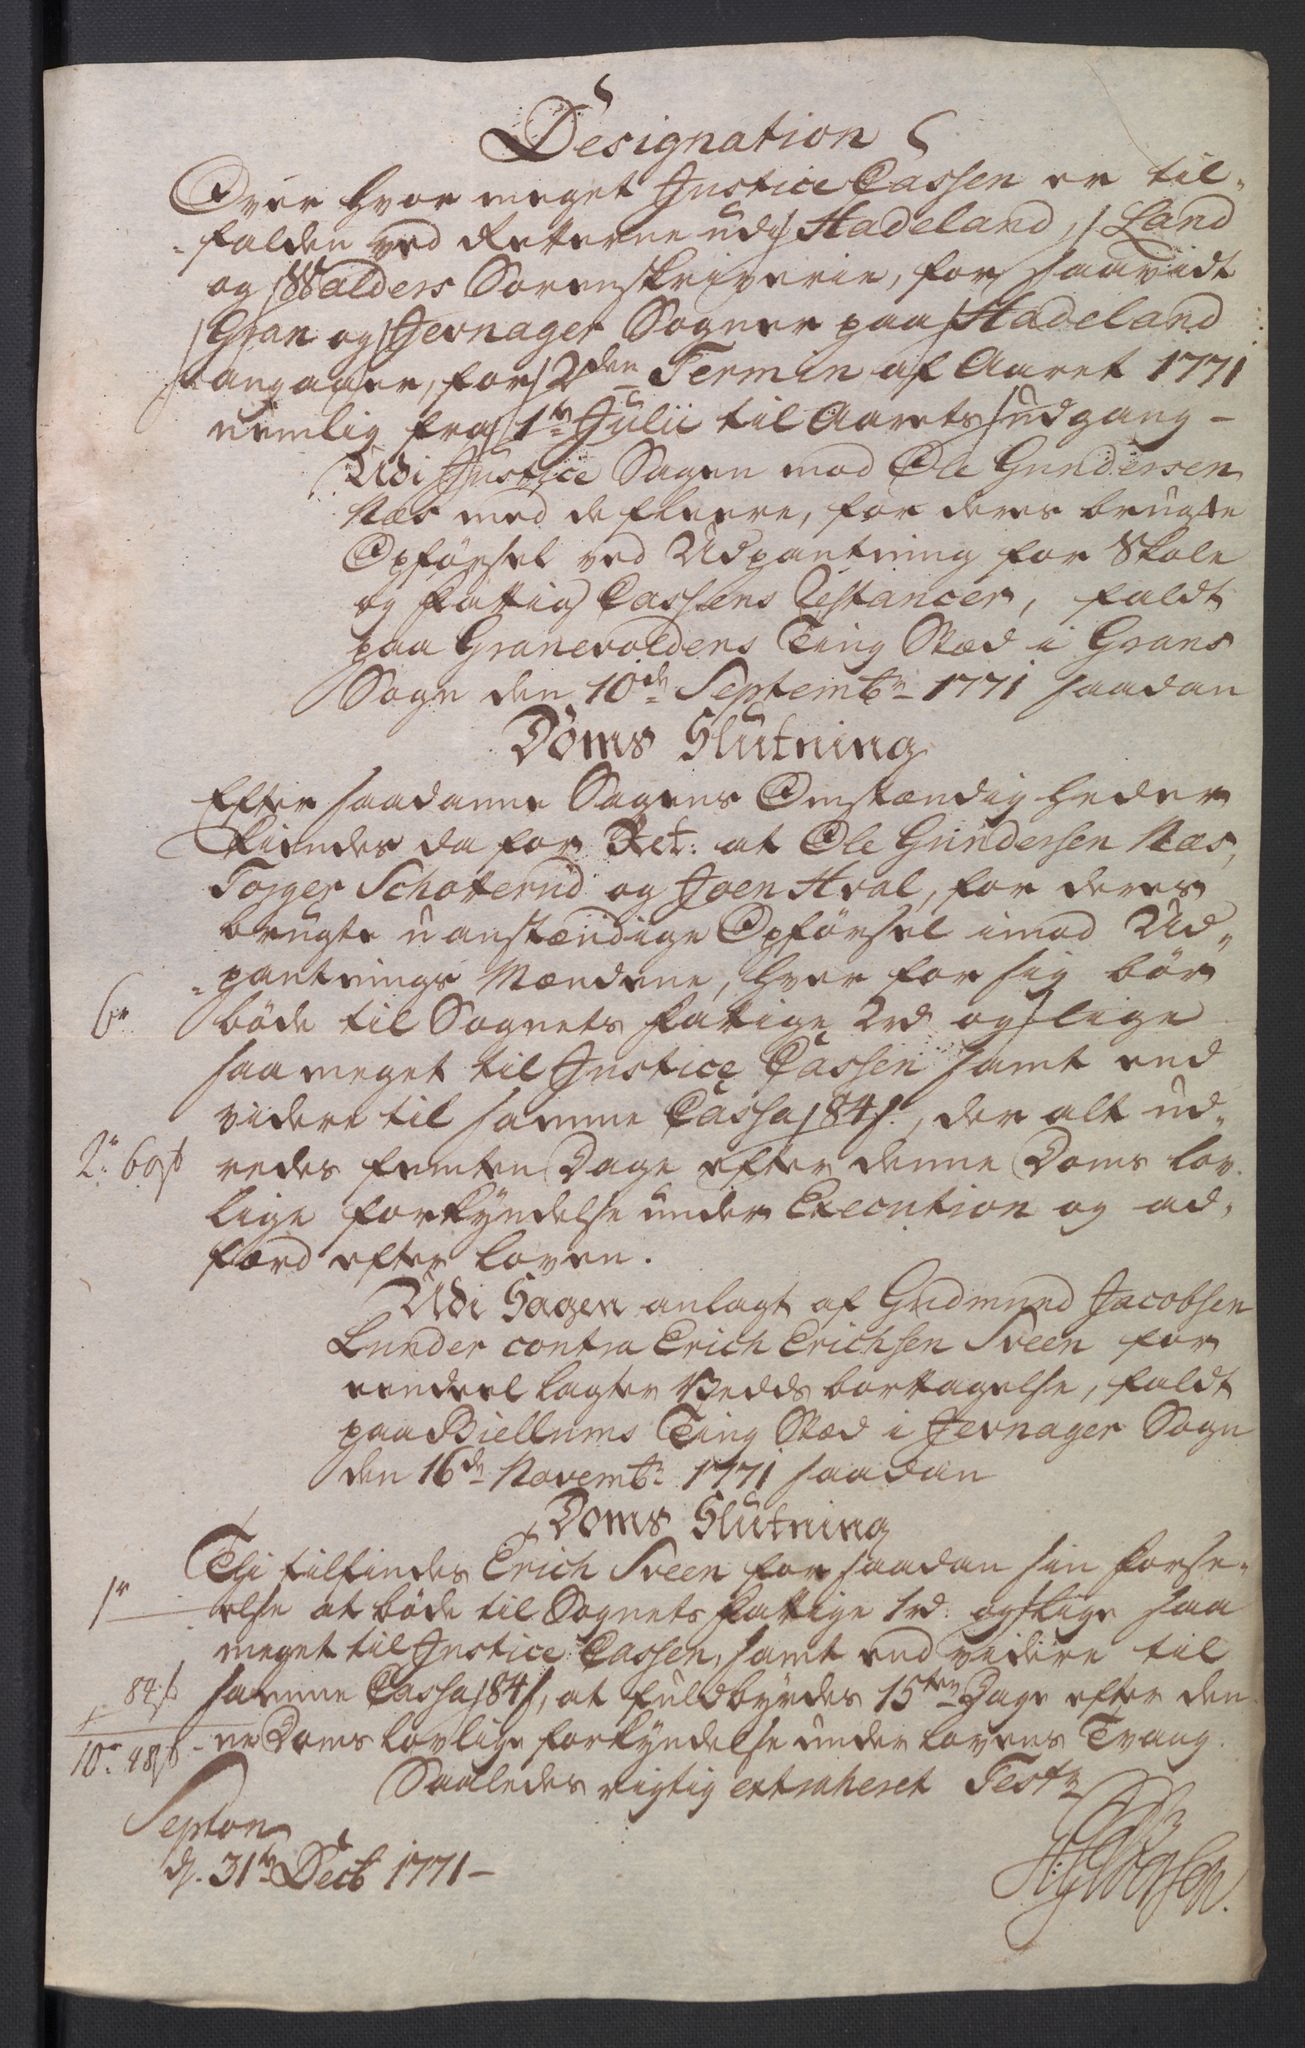 Designation
Over hvor meget Justice Cassen er til-
falden ved Retterne udj Hadeland, Land
og Walders Sorenskriverie, for saavidt
Gran og Jevnager Sogner paa Hadeland
angaaer, for 2den Termin af Aaret 1771
nemlig fra 1te Julii til Aarets udgang -
Udi Justice Sagen mod Ole Gundersen
Næs med de fleere, for deres brugte
Opførsel ved Udpantning for Skole
og Fattig Cassens Restancer, faldt
paa Granevoldens Ting Stæd i Grans
Sogn den 10de Septembr 1771 saadan
Doms Slutning
Efter saadanne Sagens Omstændigheder
kiendes da for Ret: at Ole Gundersen Næs,
Torger Schoterud og Joen Hval, for deres
brugte uanstændige Opførsel imod Ud-
pantnings Mændene, hver for sig bør
6r bøde til Sognets Fattige 2rd og lige
saa meget til Justice Cassen samt end
videre til samme Cassa 84s, der alt ud-
2r 60s redes femten Dage efter denne Doms lov-
lige forkyndelse under Execution og ad-
færd efter loven.
Udi Sagen anlagt af Gudmund Jacobsen
Lunder contra Erich Erichsen Sveen for
eendeel lagter Vedds borttagelse, faldt
paa Biellums Ting Stæd i Jevnager Sogn
den 16de Novembr 1771 saadan
Doms Slutning
Thi tilfindes Erich Sveen for saadan sin Forse-
1r else at bøde til Sognets Fattige 1rd. og lige saa
meget til Justice Cassen, samt end videre til
84s samme Cassa 84s, at fuldbyrdes 15ten Dage efter den-
10r 48s ne Doms lovlige forkyndelse under lovens Tvang.
Saaledes rigtig extraheret Testr
d. 31te Decb 1771 -